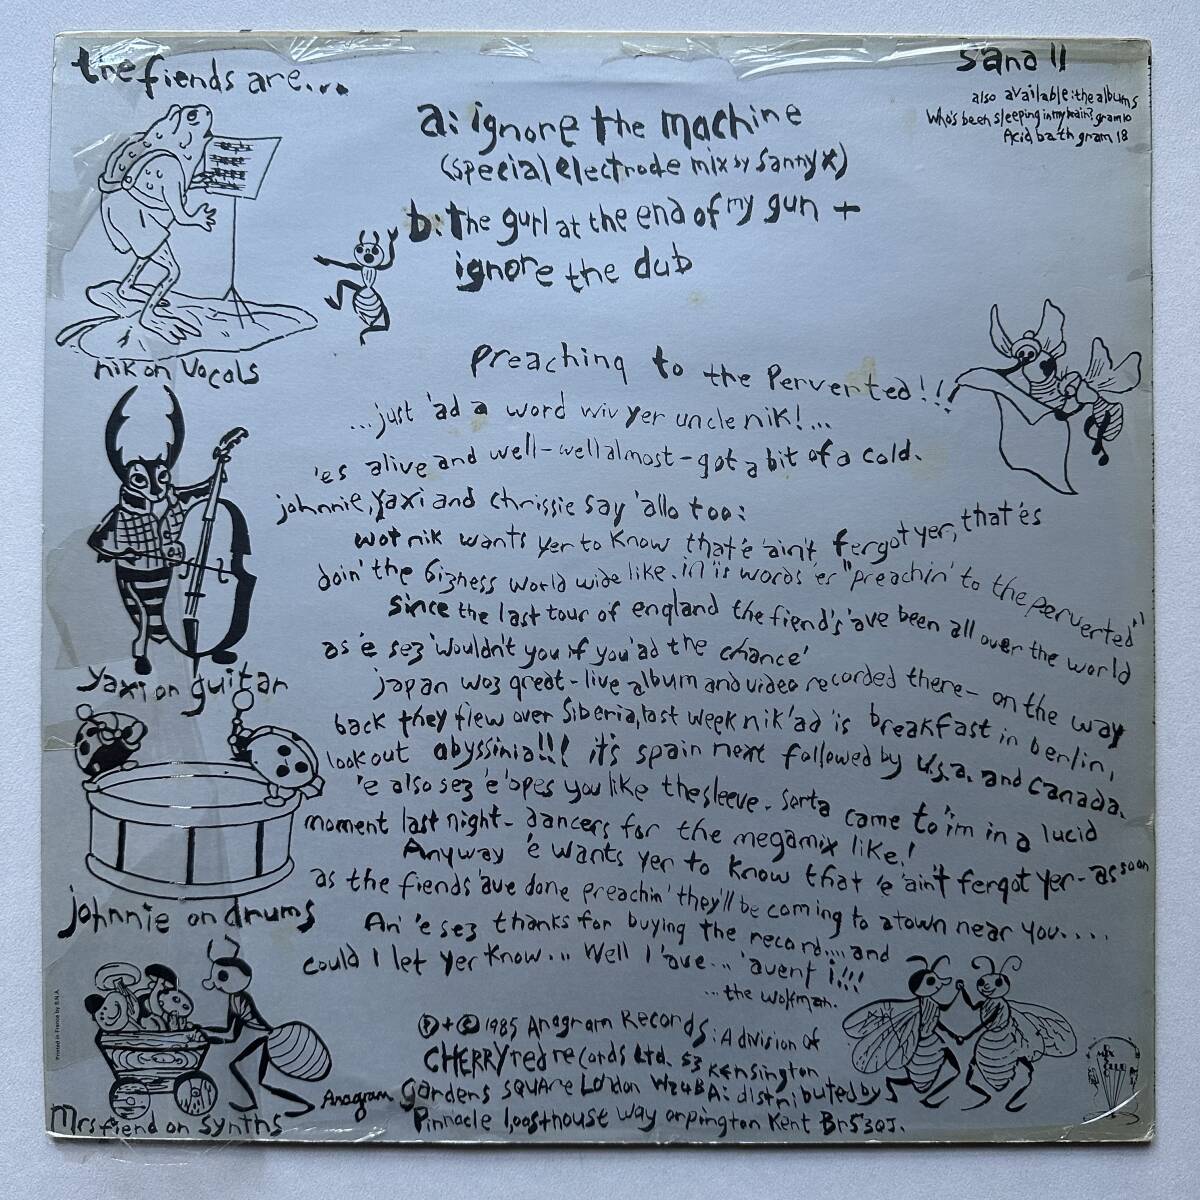 the fiends are...
sana 11
also available: the albums
Who's been sleeping in my brain? gram10
Acid bath gram 18
a: ignore the machine
(special electrode mix by Sanny X)
b: the gurl at the end of my gun +
ignore the dub
nik on vocals
preaching to the Perverted!!!
...just 'ad a word wiv yer uncle nik!...
'es alive and well - well almost - got a bit of a cold.
johnnie, yaxi and chrissie say 'allo too:
wot nik wants yer to know that 'e 'ain't fergot yer, that'es
doin' the bizness world wide like. in 'is words 'er "preachin' to the perverted"
since the last tour of england the fiend's 'ave been all over the world
as 'e sez 'wouldn't you if you 'ad the chance'
yaxi on guitar
japan woz great - live album and video recorded there - on the way
back they flew over Siberia, last week nik 'ad 'is breakfast in berlin,
look out abyssinia!!! it's spain next followed by u.s.a. and canada.
'e also sez 'e 'opes you like the sleeve. sorta came to 'im in a lucid
moment last night - dancers for the megamix like!
Anyway 'e wants yer to know that 'e 'ain't fergot yer - as soon
as the fiends 'ave done preachin' they'll be coming to a town near you....
johnnie on drums
An' 'e sez thanks for buying the record.... and
could I let yer know... Well I 'ave... 'avent i!!!
...the wolfman.
Ⓟ + © 1985 Anagram Records: A division of
CHERRY red records Ltd. 53 Kensington
Gardens square London W24BA: distributed by
Anagram
Pinnacle 1,oasthouse way orpington Kent Br53QJ.
Mrs fiend on synths
Printed in France by S.N.A.